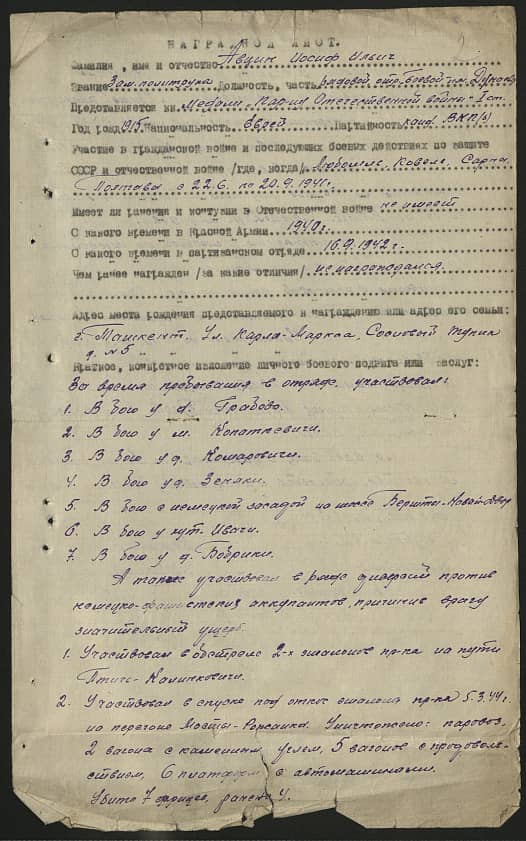 НАГРАДНОЙ ЛИСТ.
Фамилия, имя и отчество Авцин Иосиф Ильич
Звание Зам. политрука Должность, часть рядовой, отр. боевой им.
Представляется к м. Медали "Партиз. Отечественной войны" I ст.
Год рожд 1915 Национальность еврей Партийность канд. ВКП/б/
Участие в гражданской войне и последующих боевых действиях по защите
СССР и отечественной войне /где, когда/ Любомль, Ковель, Сарны,
Полтава с 22.6. по 20.9.1941г.
Имеет ли ранения и контузии в Отечественной войне не имеет
С какого времени в Красной Армии 1940г.
С какого времени в партизанском отряде 16.9.1942г.
Чем ранее награжден /за какие отличия/ не награждался
Адрес места рождения представляемого к награждению или адрес его семьи:
г. Ташкент, ул. Карла-Маркса, Сосновый тупик
д. №5
Краткое, конкретное изложение личного боевого подвига или заслуг:
За время пребывания в отряде участвовал:
1. В бою у д. Грабово.
2. В бою у м. Копаткевичи.
3. В бою у д. Комаровичи.
4. В бою у д. Зеняки.
5. В бою с немецкой засадой на шоссе Бершты-Новый-Двор
6. В бою у хут. Ивачи.
7. В бою у д. Бобрики.
А также участвовал в ряде диверсий против
немецко-фашистских аккупантов, причинив врагу
значительный ущерб.
1. Участвовал в обстреле 2-х эшалонов пр-ка на пути
Птичь-Калинковичи.
2. Участвовал в спуске под откос эшалона пр-ка 5.3.44г.
на перегоне Мосты-Рожанка. Уничтожено: паровоз,
2 вагона с каменным углем, 5 вагонов с продоволь-
ствием, 6 платформ с автомашинами.
Убито 7 фрицев, ранено 4.